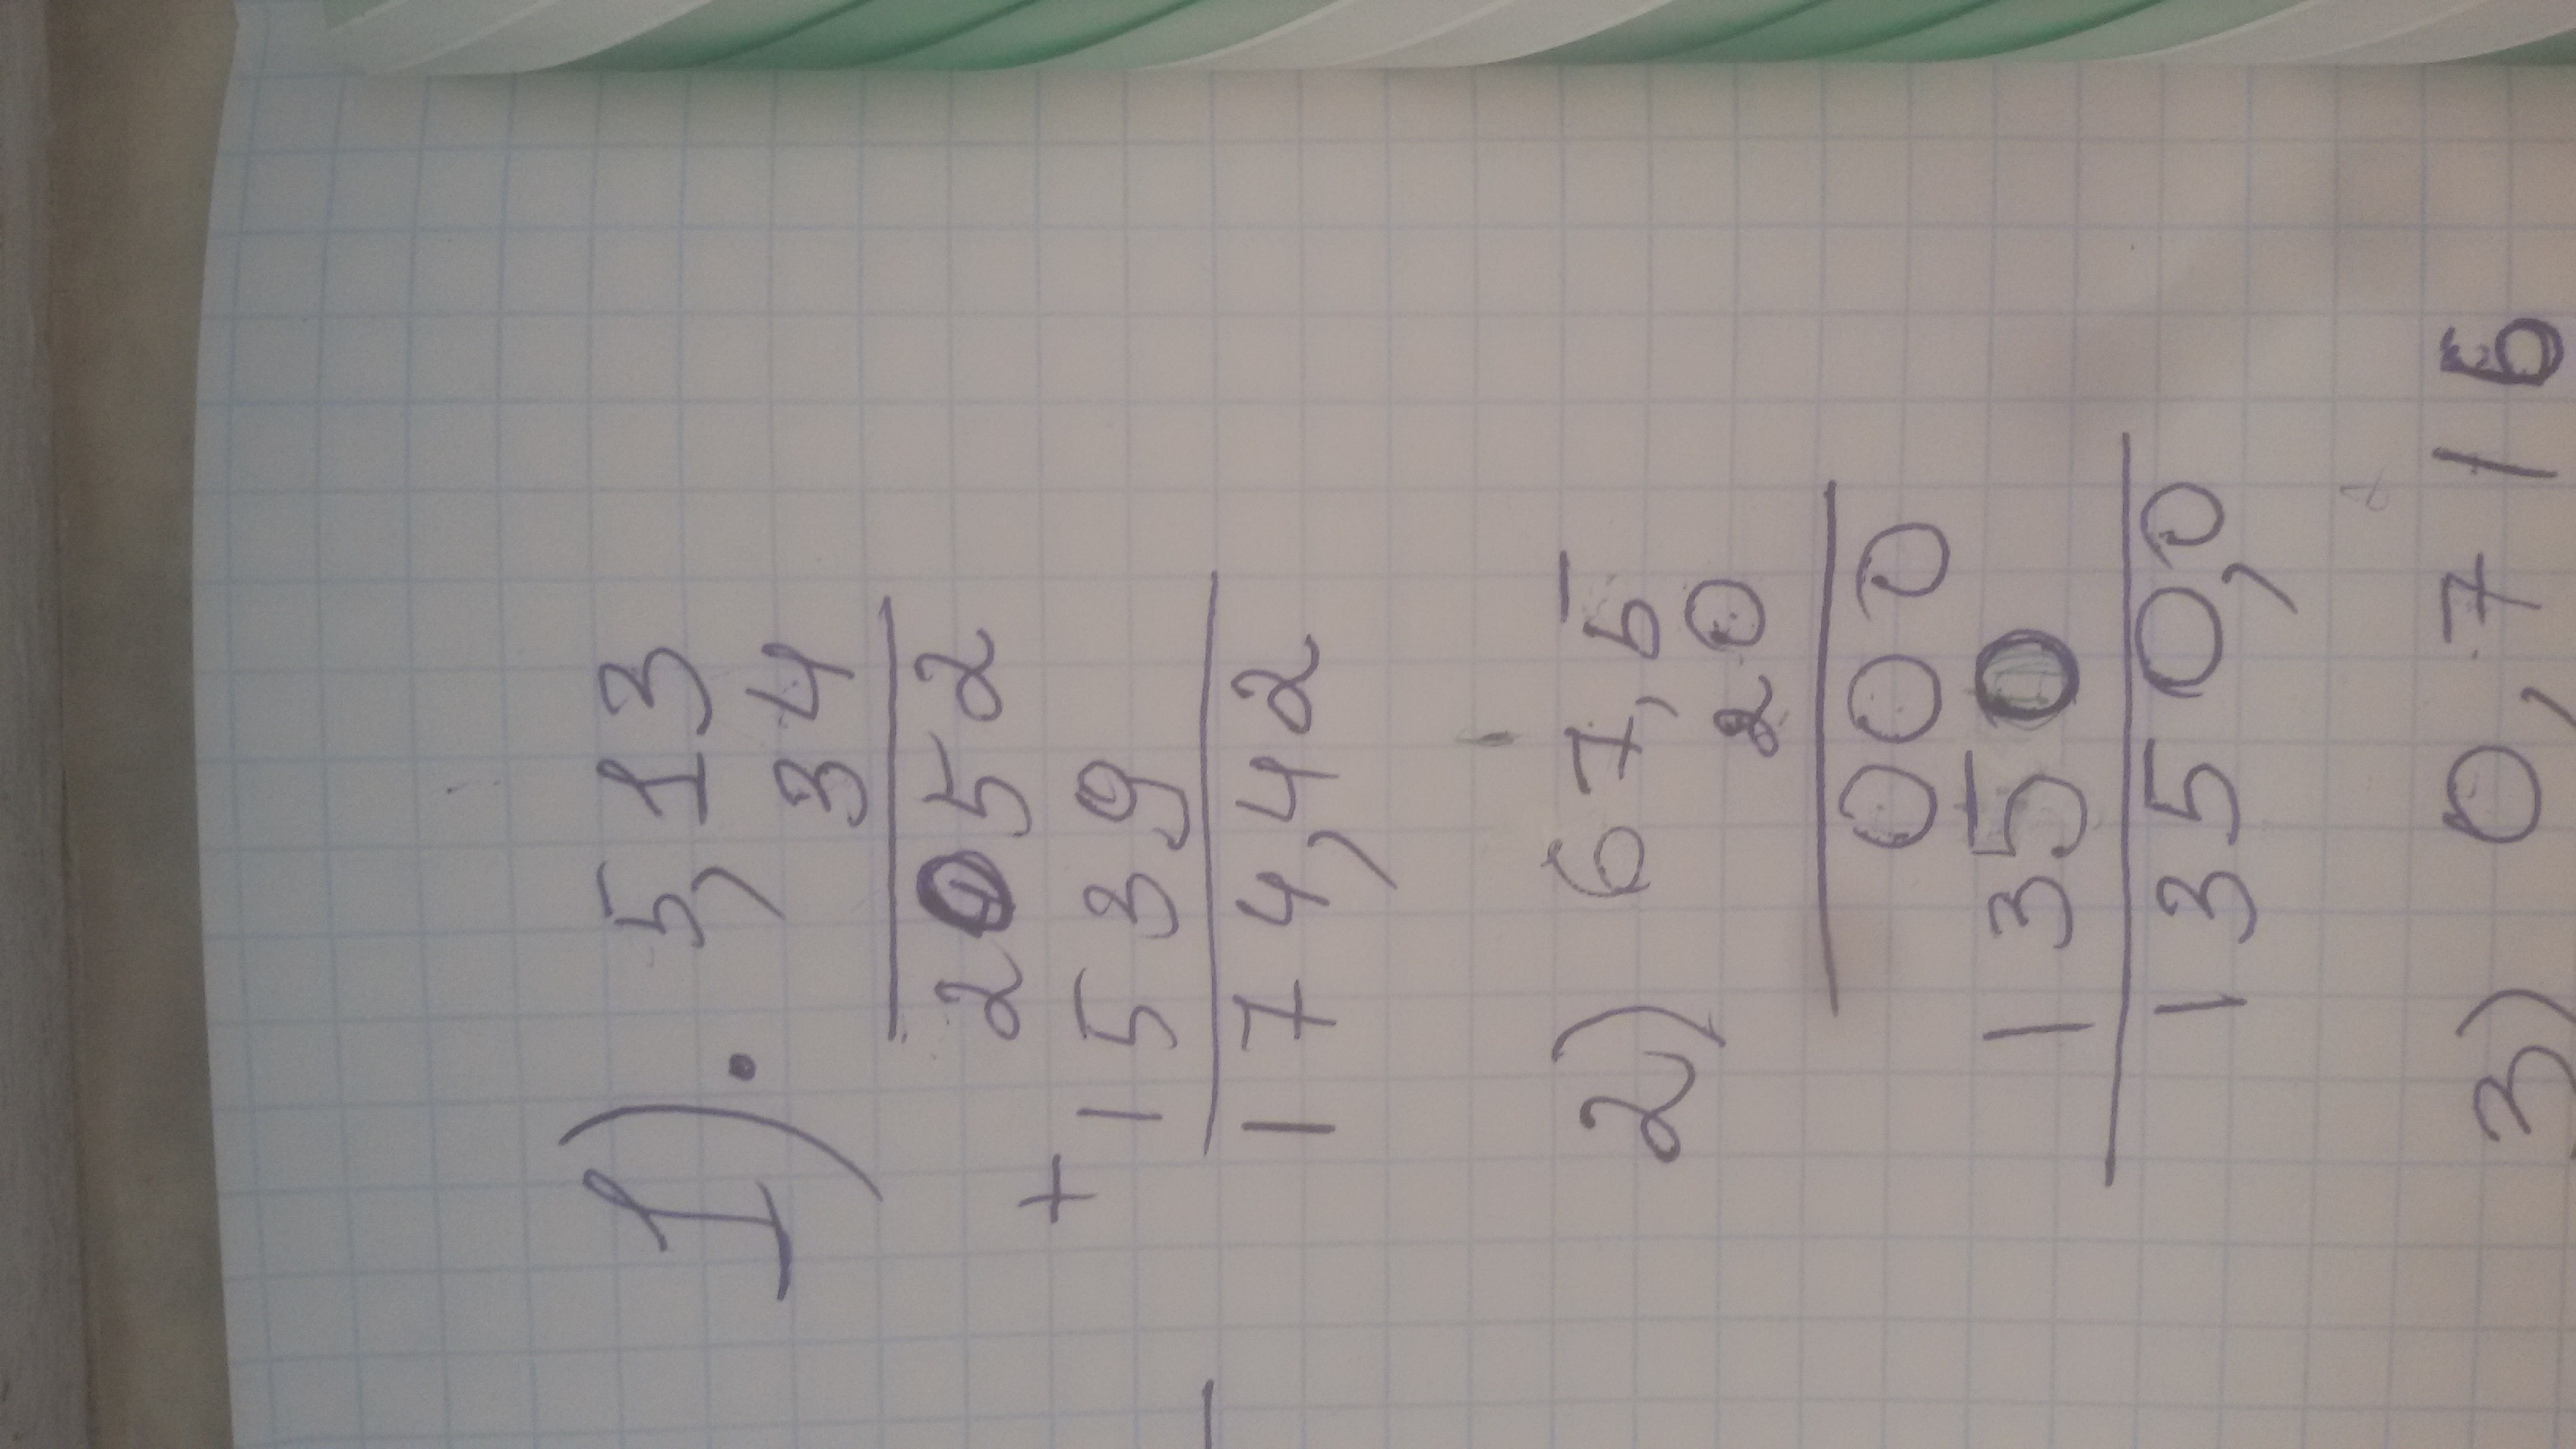 1). 5,13
34
2052
+ 1539
174,42
2) 67,5
20
000
1350
1350,0
3) 0,716